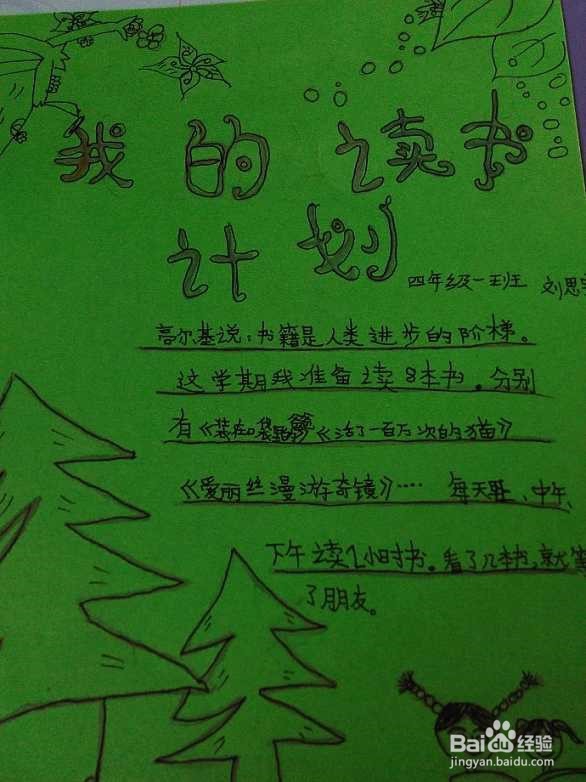 我的读书
计划
四年级一班 刘思
高尔基说:书籍是人类进步的阶梯。
这学期我准备读8本书。分别
有《装在口袋里的》《活了一百万次的猫》
《爱丽丝漫游奇镜》…… 每天、中午、
下午读1小时书。看了几本书,就
了朋友。
Baidu经验
jingyan.baidu.com